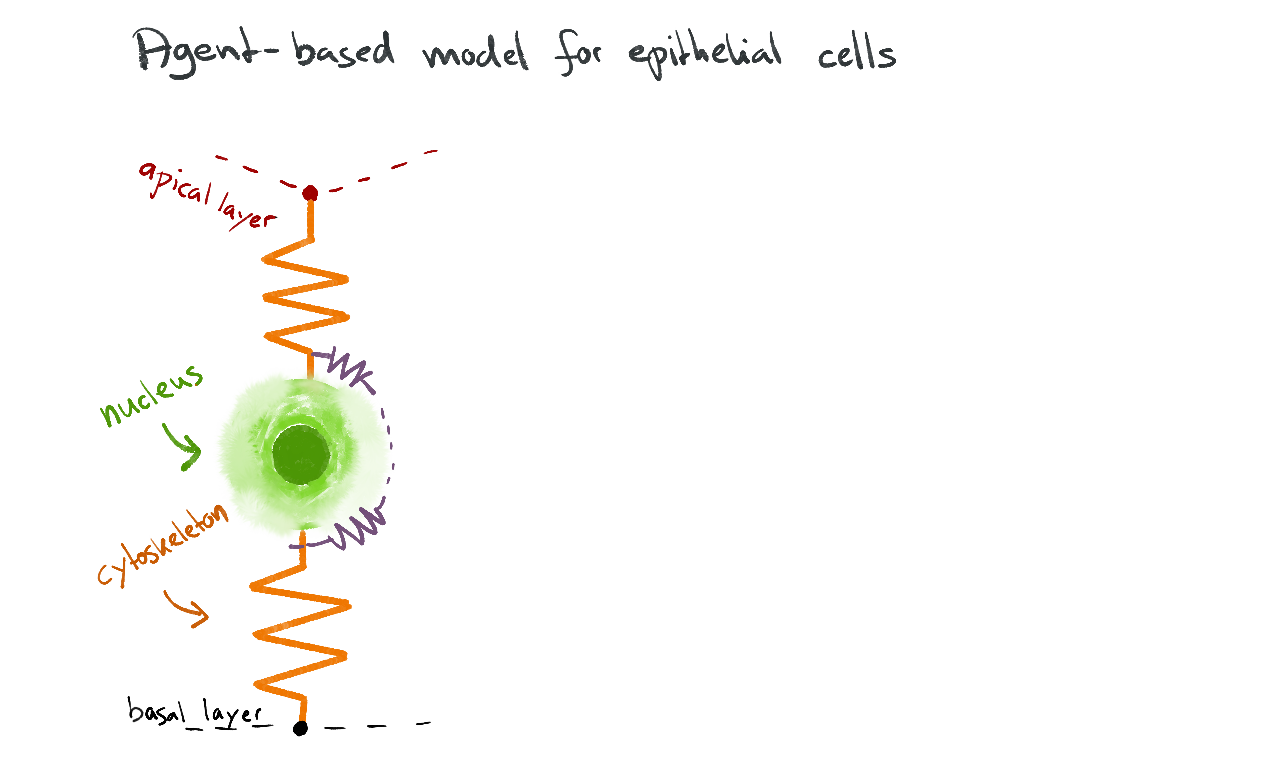 Agent-based model for epithelial cells
apical layer
nucleus
cytoskeleton
basal layer